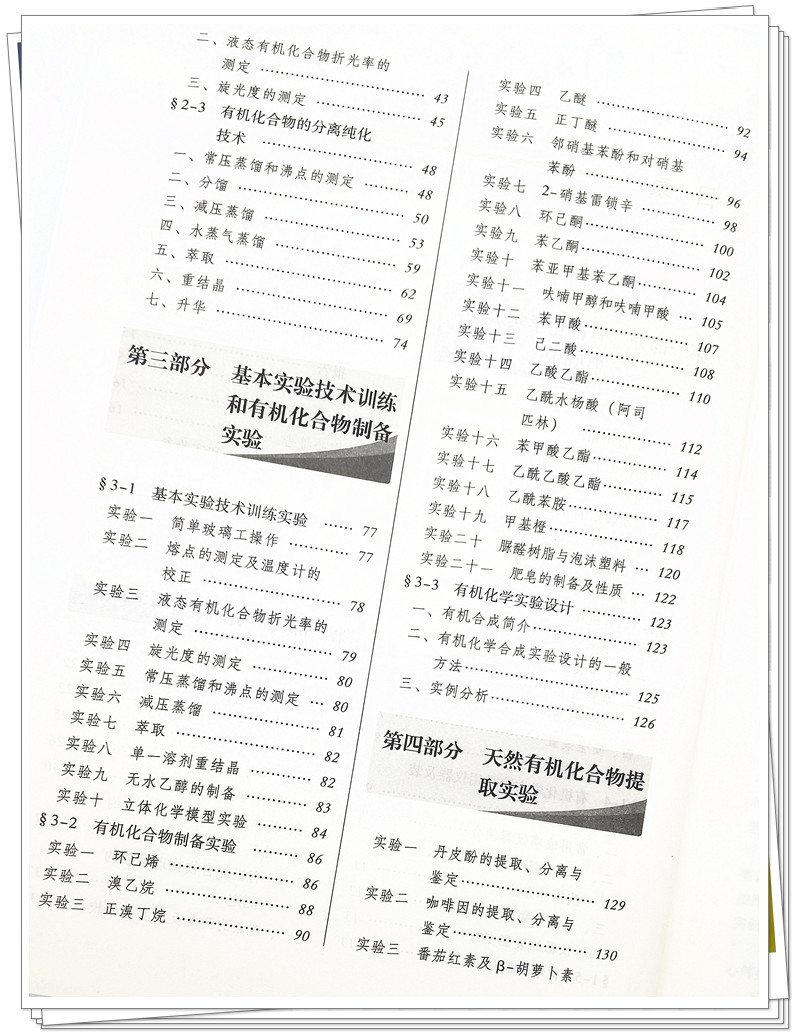 二、液态有机化合物折光率的
测定 …… 43
三、旋光度的测定 …… 45
§2-3 有机化合物的分离纯化
技术 …… 48
一、常压蒸馏和沸点的测定 …… 48
二、分馏 …… 50
三、减压蒸馏 …… 53
四、水蒸气蒸馏 …… 59
五、萃取 …… 62
六、重结晶 …… 69
七、升华 …… 74
第三部分 基本实验技术训练
和有机化合物制备
实验
§3-1 基本实验技术训练实验 …… 77
实验一 简单玻璃工操作 …… 77
实验二 熔点的测定及温度计的
校正 …… 78
实验三 液态有机化合物折光率的
测定 …… 79
实验四 旋光度的测定 …… 80
实验五 常压蒸馏和沸点的测定 … 80
实验六 减压蒸馏 …… 81
实验七 萃取 …… 82
实验八 单一溶剂重结晶 …… 82
实验九 无水乙醇的制备 …… 83
实验十 立体化学模型实验 …… 84
§3-2 有机化合物制备实验 …… 86
实验一 环己烯 …… 86
实验二 溴乙烷 …… 88
实验三 正溴丁烷 …… 90
实验四 乙醚 …… 92
实验五 正丁醚 …… 94
实验六 邻硝基苯酚和对硝基
苯酚 …… 96
实验七 2-硝基雷锁辛 …… 98
实验八 环己酮 …… 100
实验九 苯乙酮 …… 102
实验十 苯亚甲基苯乙酮 …… 104
实验十一 呋喃甲醇和呋喃甲酸 … 105
实验十二 苯甲酸 …… 107
实验十三 己二酸 …… 108
实验十四 乙酸乙酯 …… 110
实验十五 乙酰水杨酸（阿司
匹林） …… 112
实验十六 苯甲酸乙酯 …… 114
实验十七 乙酰乙酸乙酯 …… 115
实验十八 乙酰苯胺 …… 117
实验十九 甲基橙 …… 118
实验二十 脲醛树脂与泡沫塑料 … 120
实验二十一 肥皂的制备及性质 … 122
§3-3 有机化学实验设计 …… 123
一、有机合成简介 …… 123
二、有机化学合成实验设计的一般
方法 …… 125
三、实例分析 …… 126
第四部分 天然有机化合物提
取实验
实验一 丹皮酚的提取、分离与
鉴定 …… 129
实验二 咖啡因的提取、分离与
鉴定 …… 130
实验三 番茄红素及β-胡萝卜素